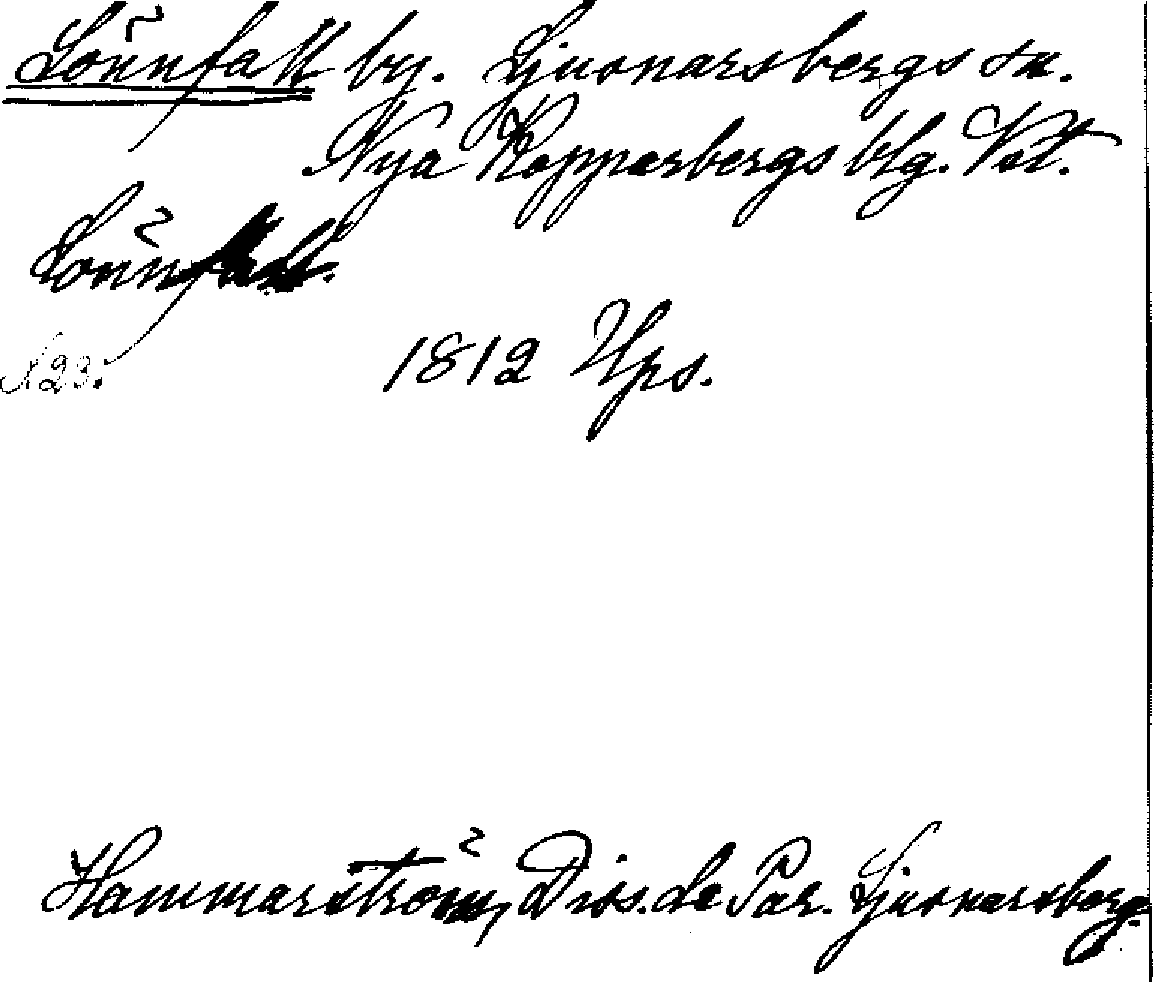 Lönnfall by. Ljusnarsbergs sn.
Nya Kopparbergs blg. Vstl.
Lönnfall.
N23. 1812 Ups.
Hammarström, Diss. de Par. Ljusnarsberg.